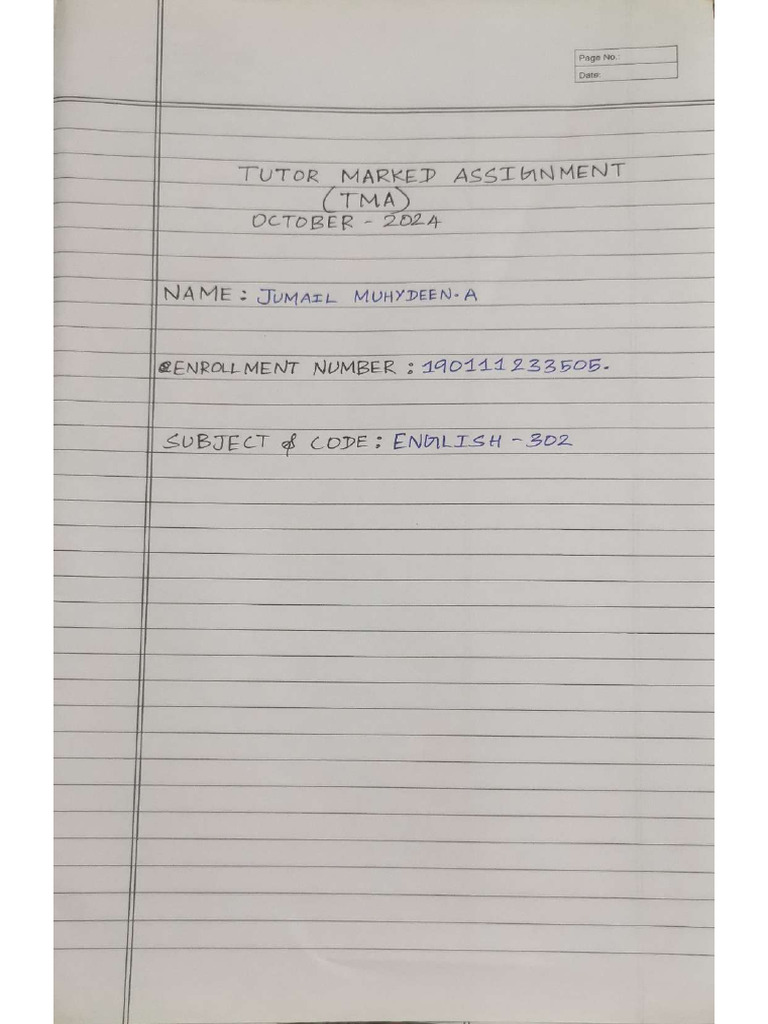 Page No.:
Date:
TUTOR MARKED ASSIGNMENT
(TMA)
OCTOBER - 2024
NAME: JUMAIL MUHYDEEN.A
ENROLLMENT NUMBER: 190111233505.
SUBJECT & CODE: ENGLISH - 302